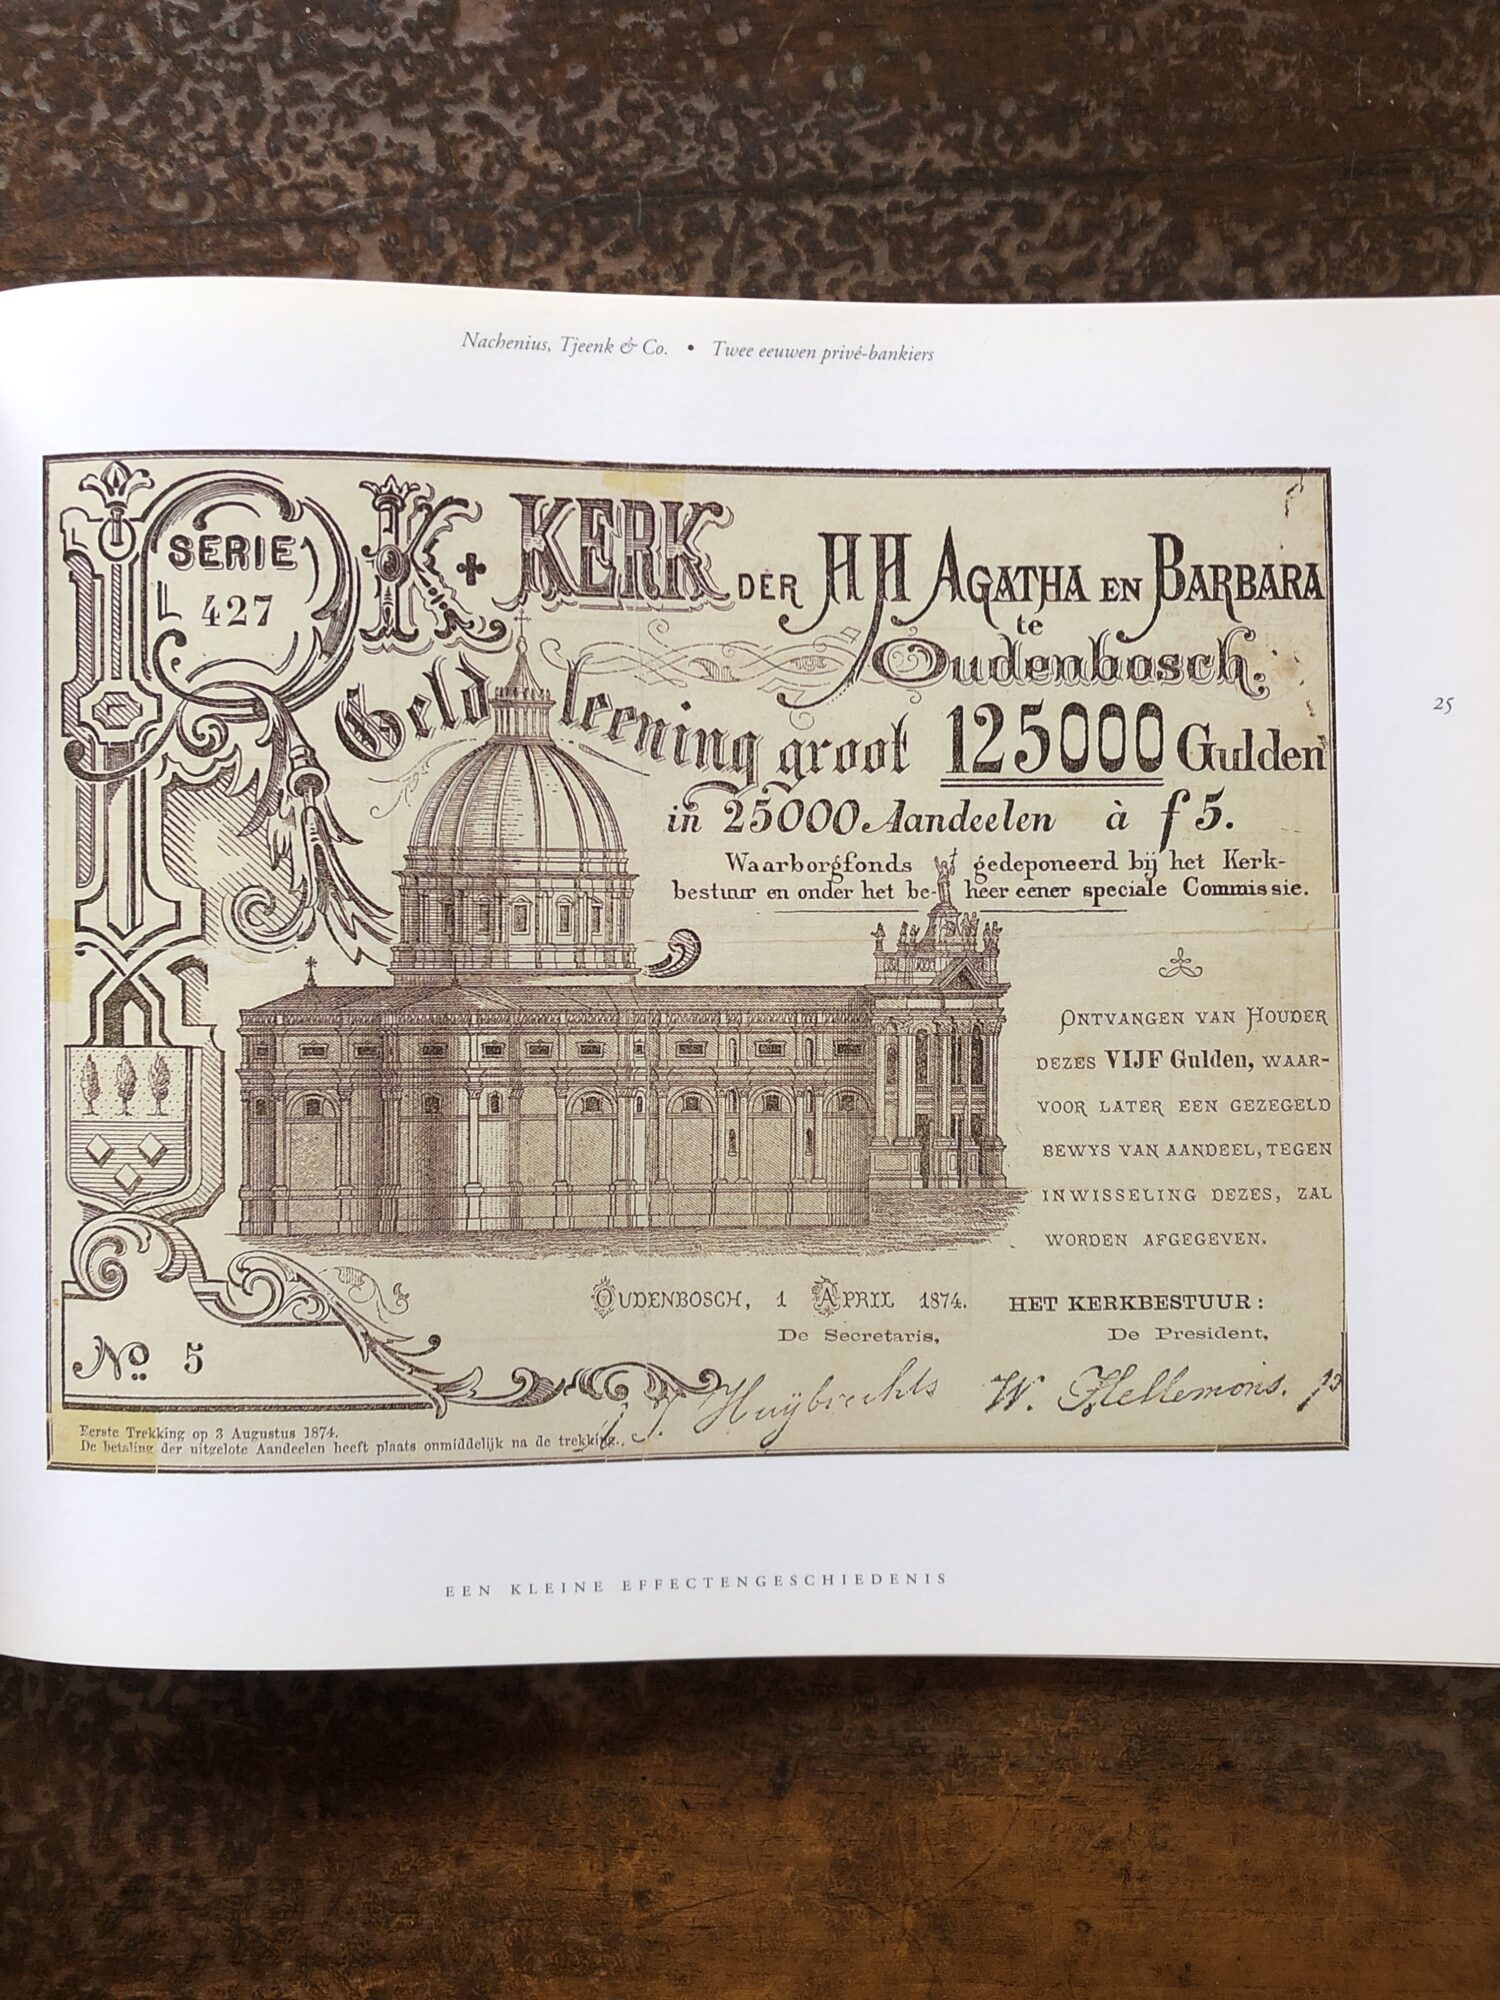 Nachenius, Tjeenk & Co. • Twee eeuwen privé-bankiers
SERIE
427
R K + KERK DER HH AGATHA EN BARBARA
te
Oudenbosch.
Geldleening groot 125000 Gulden
in 25000 Aandeelen à f 5.
Waarborgfonds gedeponeerd bij het Kerk-
bestuur en onder het be- heer eener speciale Commissie.
25
ONTVANGEN VAN HOUDER
DEZES VIJF Gulden, WAAR-
VOOR LATER EEN GEZEGELD
BEWYS VAN AANDEEL, TEGEN
INWISSELING DEZES, ZAL
WORDEN AFGEGEVEN.
OUDENBOSCH, 1 APRIL 1874. HET KERKBESTUUR:
De Secretaris, De President,
No 5
Huybrechts W. Hellemons.
Eerste Trekking op 3 Augustus 1874.
De betaling der uitgelote Aandeelen heeft plaats onmiddelijk na de trekking.
EEN KLEINE EFFECTENGESCHIEDENIS